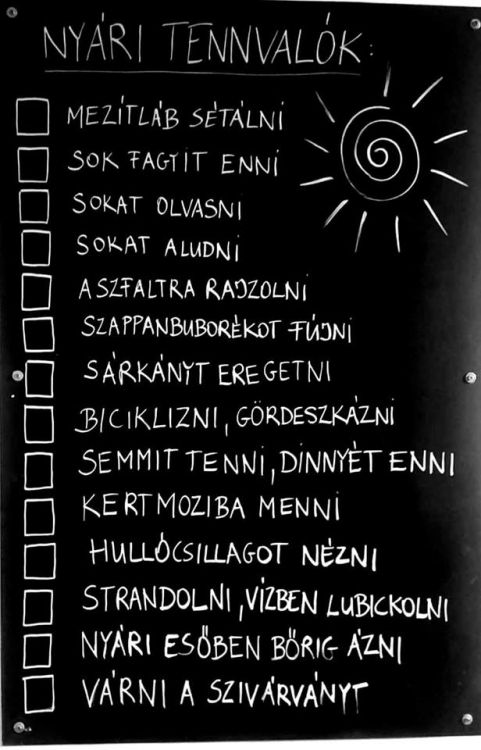 NYÁRI TENNVALÓK:
MEZÍTLÁB SÉTÁLNI
SOK FAGYIT ENNI
SOKAT OLVASNI
SOKAT ALUDNI
ASZFALTRA RAJZOLNI
SZAPPANBUBORÉKOT FÚJNI
SÁRKÁNYT EREGETNI
BICIKLIZNI, GÖRDESZKÁZNI
SEMMIT TENNI, DINNYÉT ENNI
KERTMOZIBA MENNI
HULLÓCSILLAGOT NÉZNI
STRANDOLNI, VÍZBEN LUBICKOLNI
NYÁRI ESŐBEN BŐRIG ÁZNI
VÁRNI A SZIVÁRVÁNYT